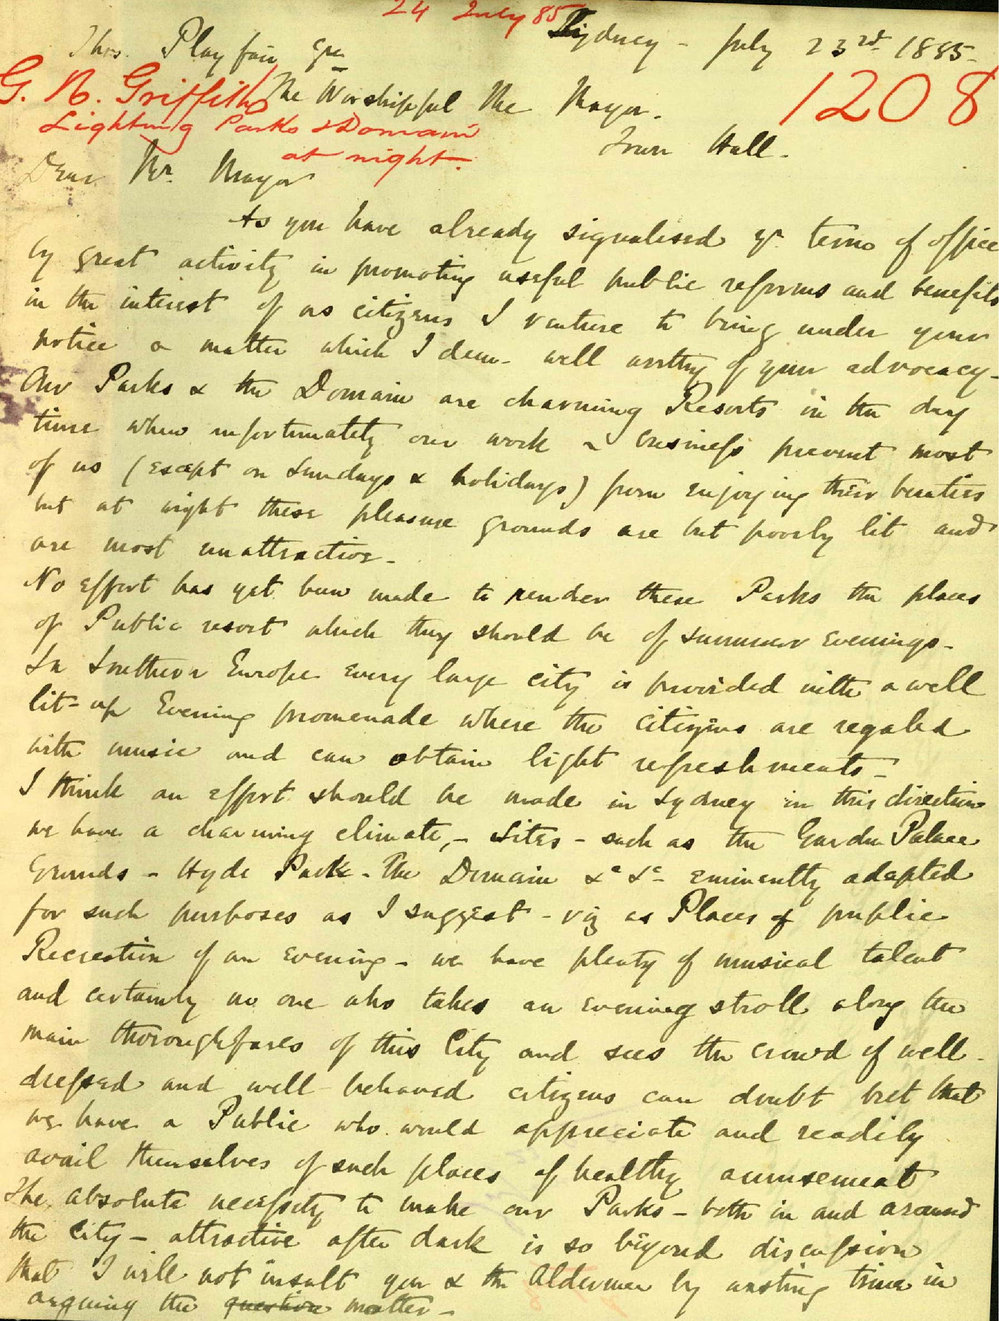 24 July 85
Sydney - July 23rd 1885.
Thos. Playfair Esqre
1208
G. N. Griffiths
The Worshipful the Mayor.
Lighting Parks & Domain
Town Hall.
at night.
Dear Mr. Mayor
As you have already signalised yr. term of office
by great activity in promoting useful public reforms and benefits
in the interest of us citizens I venture to bring under your
notice a matter which I deem well worthy of your advocacy -
Our Parks & the Domain are charming Resorts in the day
time when unfortunately our work & business prevent most
of us (except on Sundays & holidays) from enjoying their beauties
but at night these pleasure grounds are but poorly lit and
are most unattractive -
No effort has yet been made to render these Parks the places
of Public resort which they should be of summer evenings -
In Southern Europe every large city is provided with a well
lit-up Evening promenade where the citizens are regaled
with music and can obtain light refreshments -
I think an effort should be made in Sydney in this direction
we have a charming climate, - Sites - such as the Garden Palace
Grounds - Hyde Park - The Domain &c &c eminently adapted
for such purposes as I suggest - viz as Places of public
Recreation of an evening - we have plenty of musical talent
and certainly no one who takes an evening stroll along the
main thoroughfares of this City and sees the crowd of well -
dressed and well behaved citizens can doubt but that
we have a Public who would appreciate and readily
avail themselves of such places of healthy amusement
The absolute necessity to make our Parks - both in and around
the City - attractive after dark is so beyond discussion
that I will not insult you & the Aldermen by wasting time in
arguing the question matter -